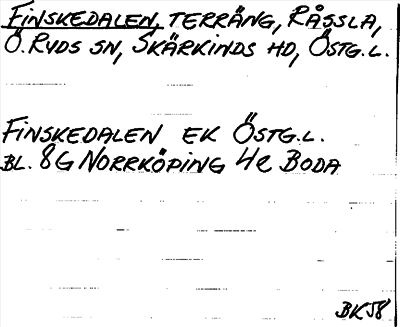 FINSKEDALEN, TERRÄNG, RÅSSLA,
Ö. RYDS SN, SKÄRKINDS HD, ÖSTG. L.
FINSKEDALEN EK ÖSTG. L.
BL. 8G NORRKÖPING 4e BODA
BK58